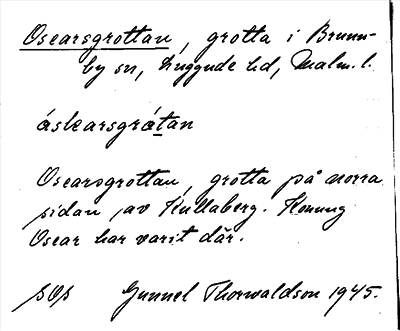 Oscarsgrottan, grotta i Brunn-
by sn, Luggude hd, Malm. l.
áskarsgråtan
Oscarsgrottan, grotta på norra
sidan av Kullaberg. Konung
Oscar har varit där.
Gunnel Thorwaldson 1945.